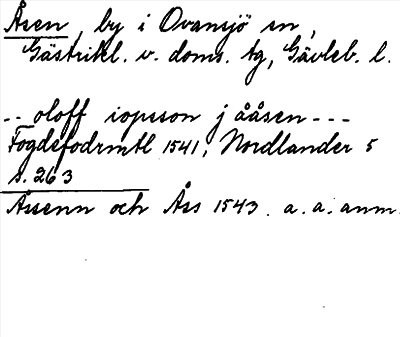 Åsen, by i Ovansjö sn,
Gästrikl. v. doms. tg, Gävleb. l.
-- oloff iopsson j ååsen ---
Fogdefodrmtl 1541, Nordlander 5
s. 263
Åssenn och Åss 1543. a. a. anm.